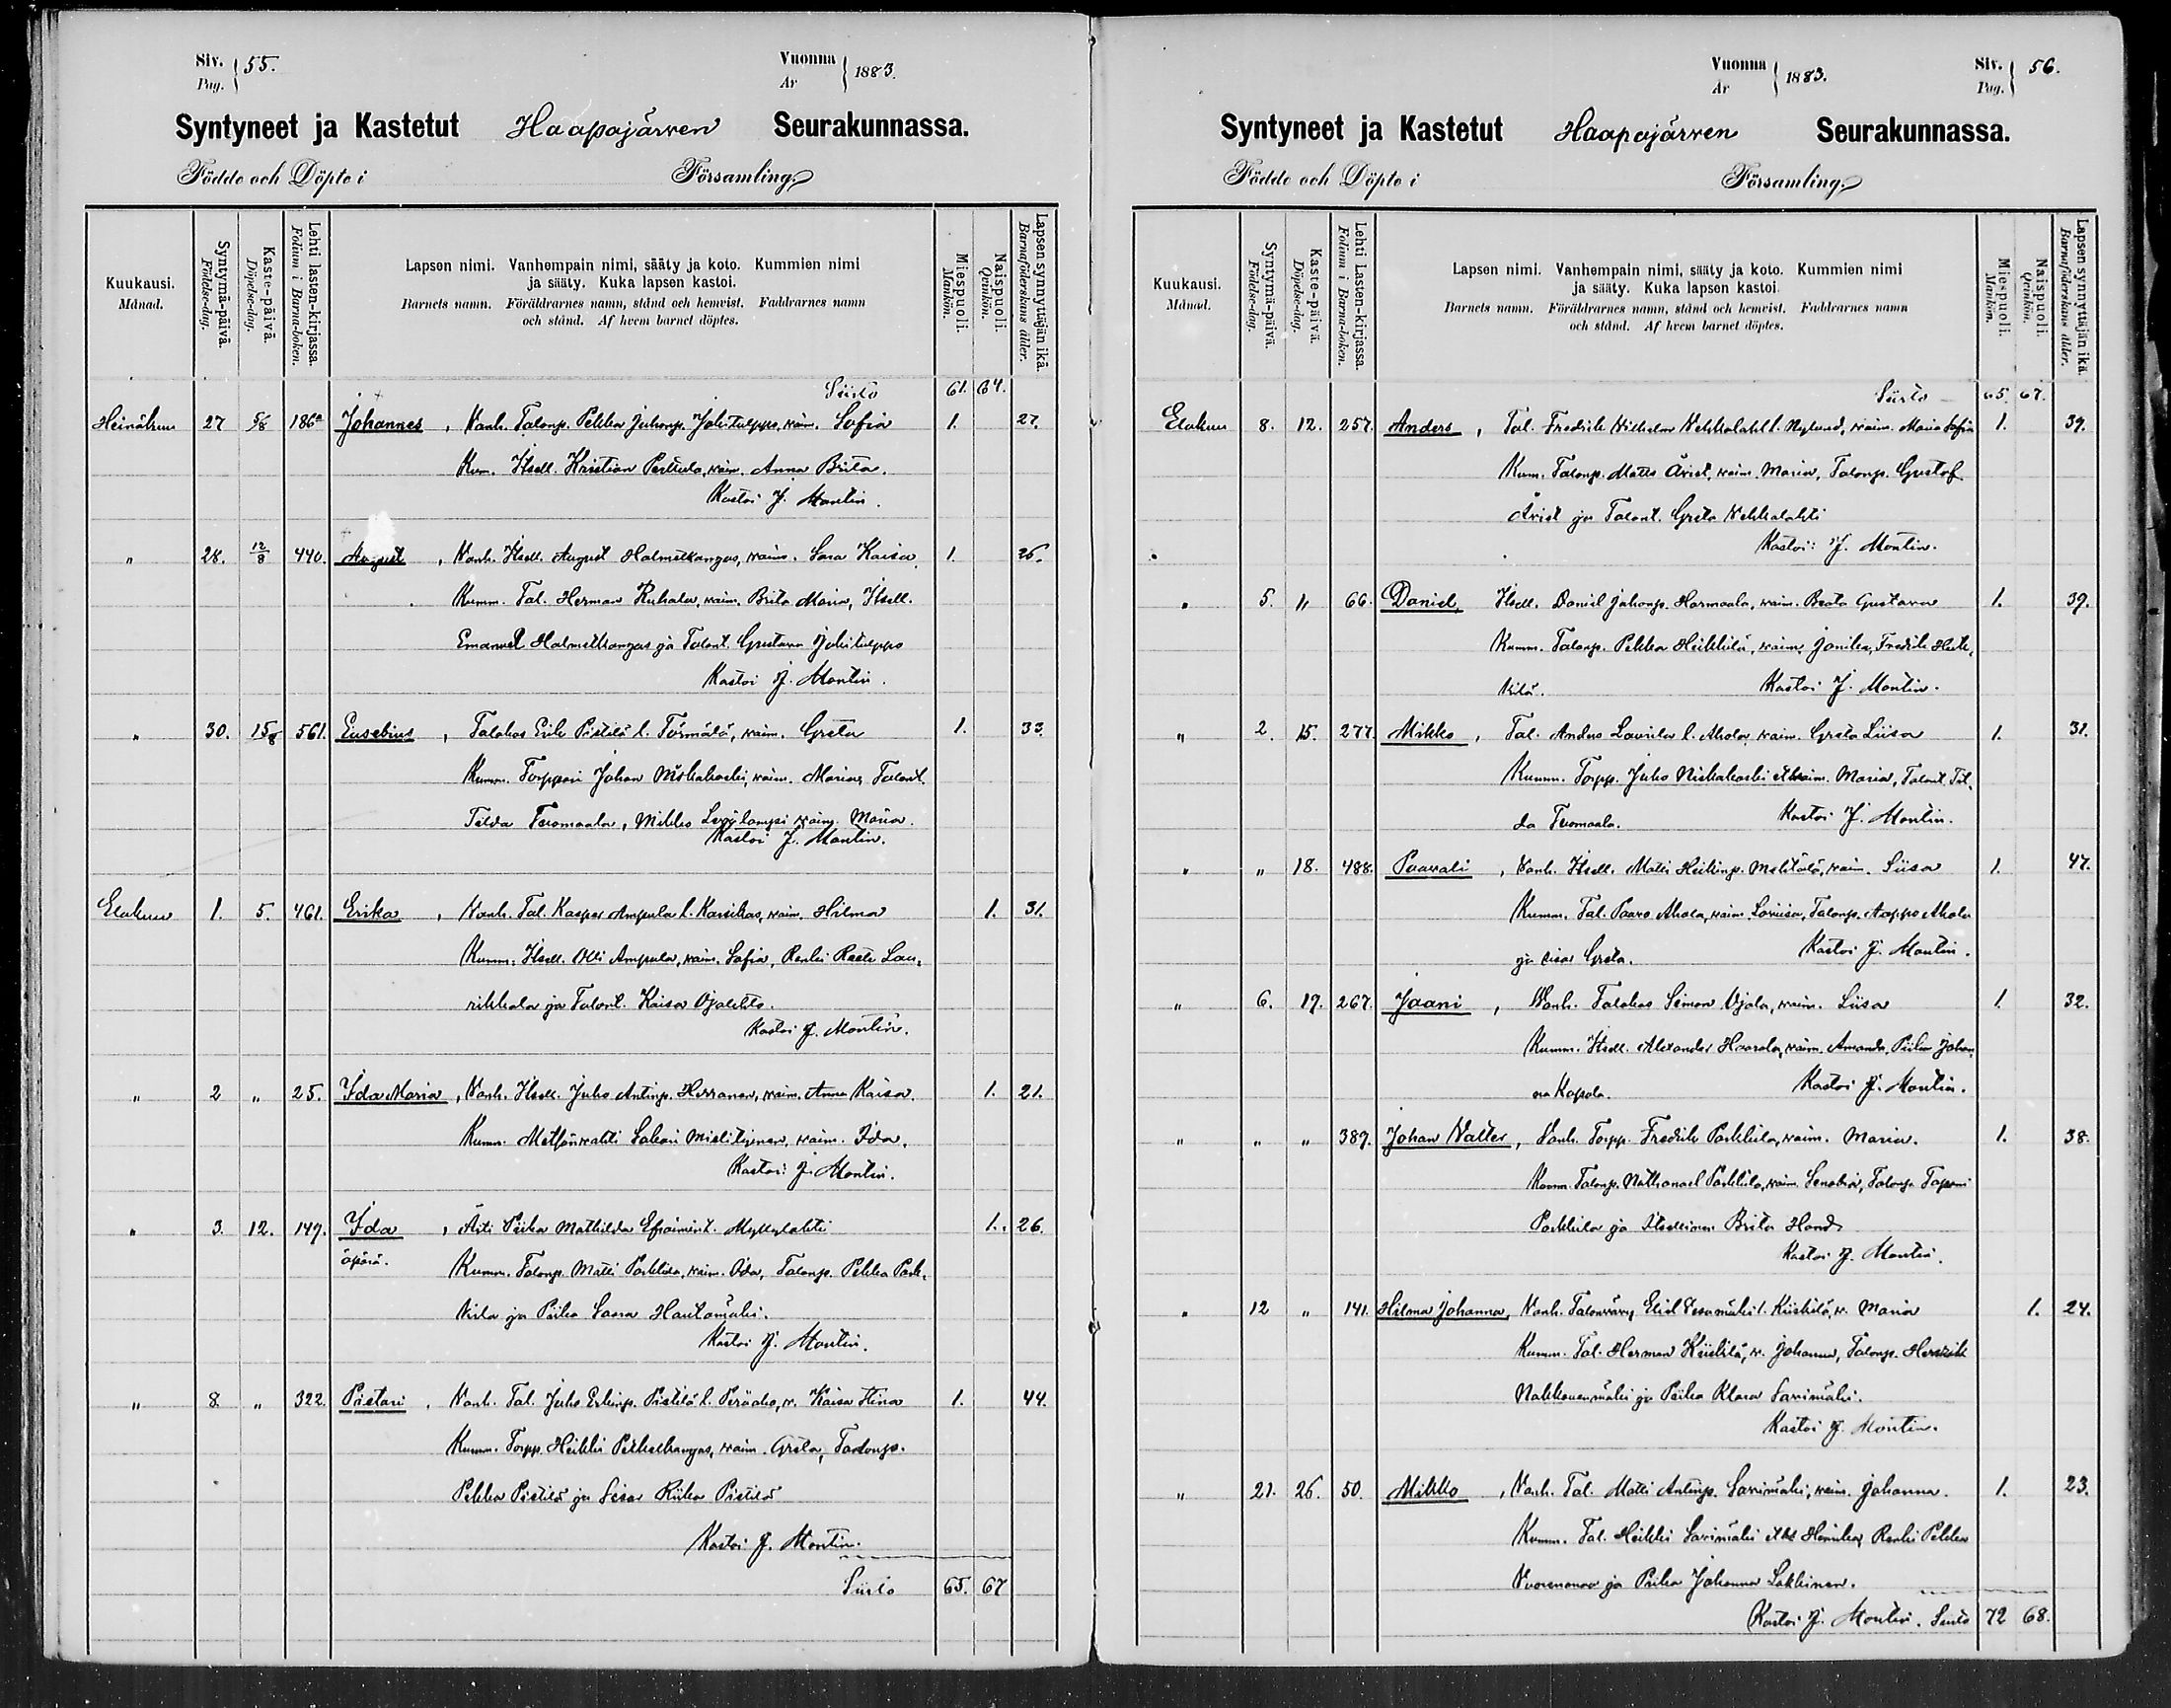 Siv. Pag. 55.
Vuonna År 1883.
Syntyneet ja Kastetut Haapajärven Seurakunnassa.
Födde och Döpte i Församling.
Kuukausi. Månad.
Syntymä-päivä. Födelse-dag.
Kaste-päivä. Döpelse-dag.
Lehti lasten-kirjassa. Folium i Barna-boken.
Lapsen nimi. Vanhempain nimi, sääty ja koto. Kummien nimi
ja sääty. Kuka lapsen kastoi.
Barnets namn. Föräldrarnes namn, stånd och hemvist. Faddrarnes namn
och stånd. Af hvem barnet döptes.
Miespuoli. Mankön.
Naispuoli. Qvinkön.
Lapsen synnyttäjän ikä. Barnaföderskans ålder.
Siirto 61. 64.
Heinäkuu 27 5/8 186 Johannes, Vanh. Talonp. Pekka Juhonp. Jokitulppo, waim. Sofia 1. 27.
Kum. Itsell. Kristian Perttula, waim. Anna Brita.
Kastoi J. Montin.
" 28. 12/8 440. August, Vanh. Itsell. August Halmetkangas, waim. Sara Kaisa 1. 26.
Kumm. Tal. Herman Ruhala, waim. Brita Maria, Itsell.
Emanuel Halmetkangas ja Talont. Gustava Jokitulppo
Kastoi J. Montin.
" 30. 15/8 561. Eusebius, Talokas Erik Pistilä l. Törmälä, waim. Greta 1. 33.
Kumm. Torppari Johan Niskakoski, waim. Maria, Talont.
Tilda Tuomaala, Mikko Lepilampi waim. Maria.
Kastoi J. Montin.
Elokuu 1. 5. 461. Erika, Vanh. Tal. Kasper Ampula l. Karsikas, waim. Hilma 1. 31.
Kumm. Itsell. Olli Ampula, waim. Sofia, Renki Lau-
rikkala ja Talont. Kaisa Ojalehto.
Kastoi J. Montin.
" 2 " 25. Ida Maria, Vanh. Itsell. Juho Antinp. Herranen, waim. Anna Kaisa. 1. 21.
Kumm. Metsänwahti Sakari Mielityinen, waim. Ida.
Kastoi J. Montin.
" 3. 12. 149. Ida, Äiti Piika Mathilda Efraimint. Myllylahti 1. 26.
äpärä. Kumm. Talonp. Matti Parkkila, waim. Ida, Talonp. Pekka Park-
kila ja Piika Saara Hautamäki.
Kastoi J. Montin.
" 8. " 322. Pastari, Vanh. Tal. Juho Erkinp. Pistilä l. Peräaho, w. Kaisa Stina 1. 44.
Kumm. Torpp. Heikki Petkelkangas, waim. Greta, Talonp.
Pekka Pistilä ja sisar Riika Pistilä
Kastoi J. Montin.
Siirto 65. 67
Vuonna År 1883.
Siv. Pag. 56.
Syntyneet ja Kastetut Haapajärven Seurakunnassa.
Födde och Döpte i Församling.
Kuukausi. Månad.
Syntymä-päivä. Födelse-dag.
Kaste-päivä. Döpelse-dag.
Lehti Lasten-kirjassa. Folium i Barna-boken.
Lapsen nimi. Vanhempain nimi, sääty ja koto. Kummien nimi
ja sääty. Kuka lapsen kastoi.
Barnets namn. Föräldrarnes namn, stånd och hemvist. Faddrarnes namn
och stånd. Af hvem barnet döptes.
Miespuoli. Mankön.
Naispuoli. Qvinkön.
Lapsen synnyttäjän ikä. Barnaföderskans ålder.
Siirto 65. 67.
Elokuu 8. 12. 257. Anders, Tal. Fredrik Wilhelm Wehkalahti l. Nylund, waim. Maria Sofia 1. 39.
Kumm. Talonp. Matts Ärist, waim. Maria, Talonp. Gustaf
Ärist ja Talont. Greta Wehkalahti
Kastoi: J. Montin.
" 5. " 66. Daniel, Itsell. Daniel Juhonp. Harmaala, waim. Beata Gustava 1. 39.
Kumm. Talonp. Pekka Heikkilä, waim. Jonika, Fredrik Heik-
kilä. Kastoi J. Montin.
" 2. 15. 277. Mikko, Tal. Anders Laurila l. Ahola, waim. Greta Liisa 1. 31.
Kumm. Torpp. Juho Niskakoski waim. Maria, Talont. Til-
da Tuomaala. Kastoi J. Montin.
" " 18. 488. Paavali, Vanh. Itsell. Matti Heikinp. Mehtälä, waim. Liisa 1. 47.
Kumm. Tal. Paavo Ahola, waim. Loviisa, Talonp. Aappo Ahola
ja sisar Greta. Kastoi J. Montin.
" 6. 19. 267. Jaani, Vanh. Talokas Simon Ojala, waim. Liisa 1. 32.
Kumm. Itsell. Alexander Haarala, waim. Amanda, Piika Johan-
na Kapala. Kastoi J. Montin.
" " " 389. Johan Valter, Vanh. Torpp. Fredrik Parkkila, waim. Maria. 1. 38.
Kumm. Talonp. Nathanael Parkkila, waim. Senobia, Talonp. Tapani
Parkkila ja Itsellinen Brita Hand
Kastoi J. Montin.
" 12 " 141. Hilma Johanna, Vanh. Talonvävy Elid Vesamäki l. Kiiskilä, w. Maria 1. 24.
Kumm. Tal. Herman Kiiskilä, w. Johanna, Talonp. Henrik
Nahkanenmäki ja Piika Klara Savimäki.
Kastoi J. Montin.
" 21. 26. 50. Mikko, Vanh. Tal. Matti Antinp. Savimäki, waim. Johanna. 1. 23.
Kumm. Tal. Heikki Savimäki Henrika, Renki Pekka
Vuorenmaa ja Piika Johanna Lakkinen.
Kastoi J. Montin. Siirto 72 68.